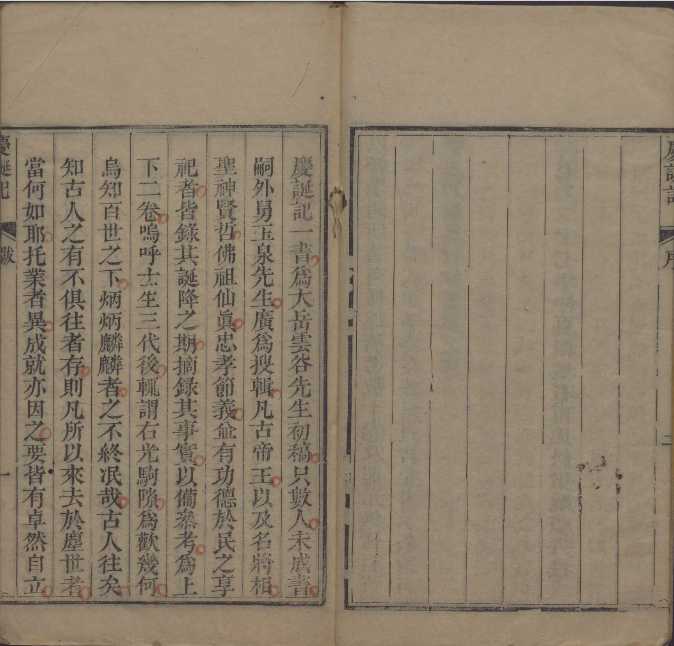 慶誕記
序
二
慶誕記一書爲大岳雲谷先生初稿只數人未成書
嗣外舅玉泉先生廣爲搜輯凡古帝王以及名將相
聖神賢哲佛祖仙眞忠孝節義並有功德於民之享
祀者皆錄其誕降之期摘錄其事實以備叅考爲上
下二卷嗚呼士生三代後輒謂石光駒隙爲歡幾何
烏知百世之下炳炳麟麟者之不終泯哉古人往矣
知古人之有不俱往者存則凡所以來去於塵世者
當何如耶托業者異成就亦因之要皆有卓然自立
慶誕記
跋
一